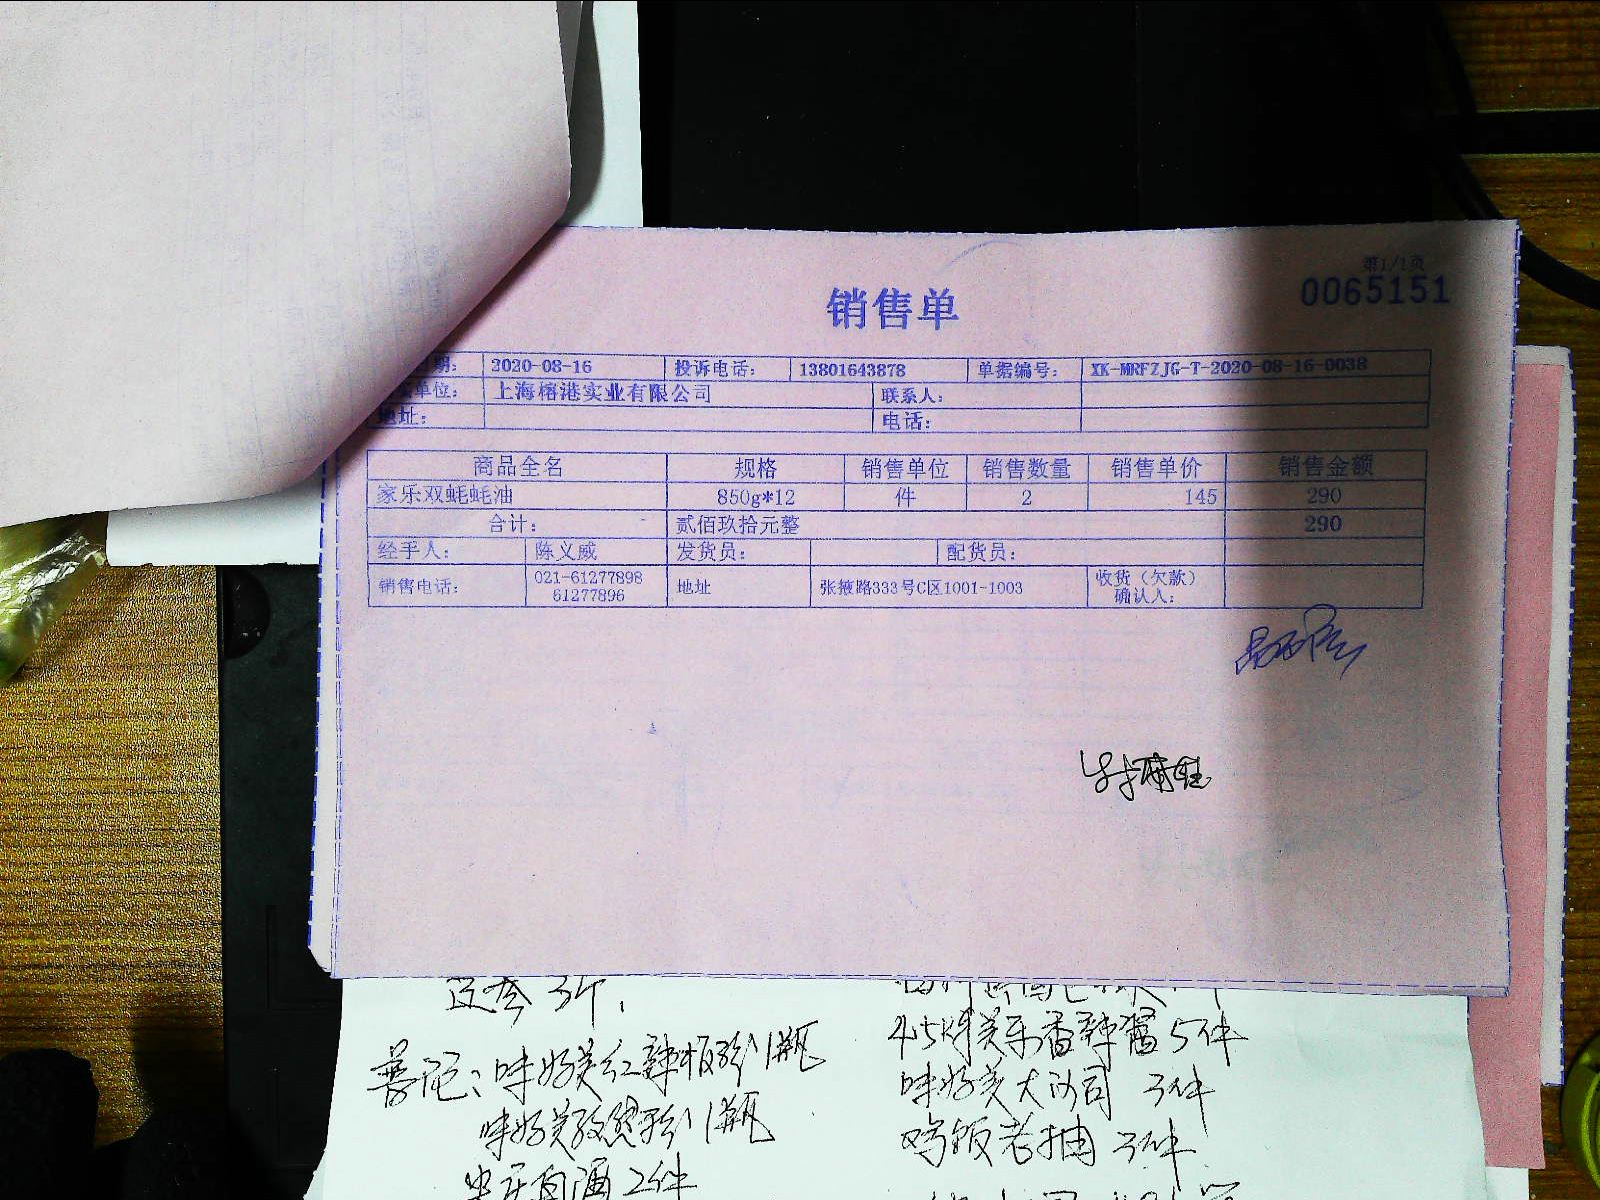 第1/1页
0065151
销售单
期： 2020-08-16 投诉电话： 13801643878 单据编号： XK-MRFZJG-T-2020-08-16-0038
单位： 上海榕港实业有限公司 联系人：
地址： 电话：
商品全名 规格 销售单位 销售数量 销售单价 销售金额
家乐双蚝蚝油 850g*12 件 2 145 290
合计： 贰佰玖拾元整 290
经手人： 陈义威 发货员： 配货员：
销售电话： 021-61277898 61277896 地址 张掖路333号C区1001-1003 收货（欠款）确认人：
普陀：味好美红辣椒粉1瓶
味好美孜然粉1瓶
白酒2件
香辣酱5件
味好美大沙司 3件
老抽 3件